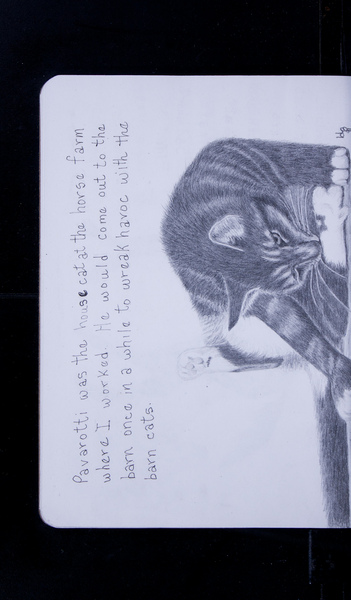 Pavarotti was the house cat at the horse farm
where I worked. He would come out to the
barn once in a while to wreak havoc with the
barn cats.